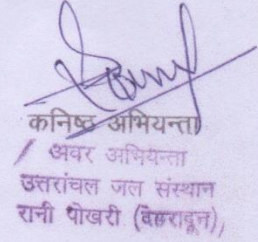 कनिष्ठ अभियन्ता
/ अवर अभियन्ता
उत्तरांचल जल संस्थान
रानी पोखरी (देहरादून)